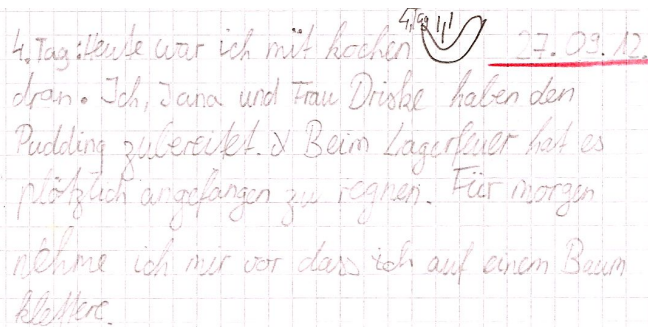 4. Tag
4. Tag: Heute war ich mit kochen 27.09.12.
dran. Ich, Jana und Frau Driske haben den
Pudding zubereitet. Beim Lagerfeuer hat es
plötzlich angefangen zu regnen. Für morgen
nehme ich mir vor dass ich auf einem Baum
klettere.